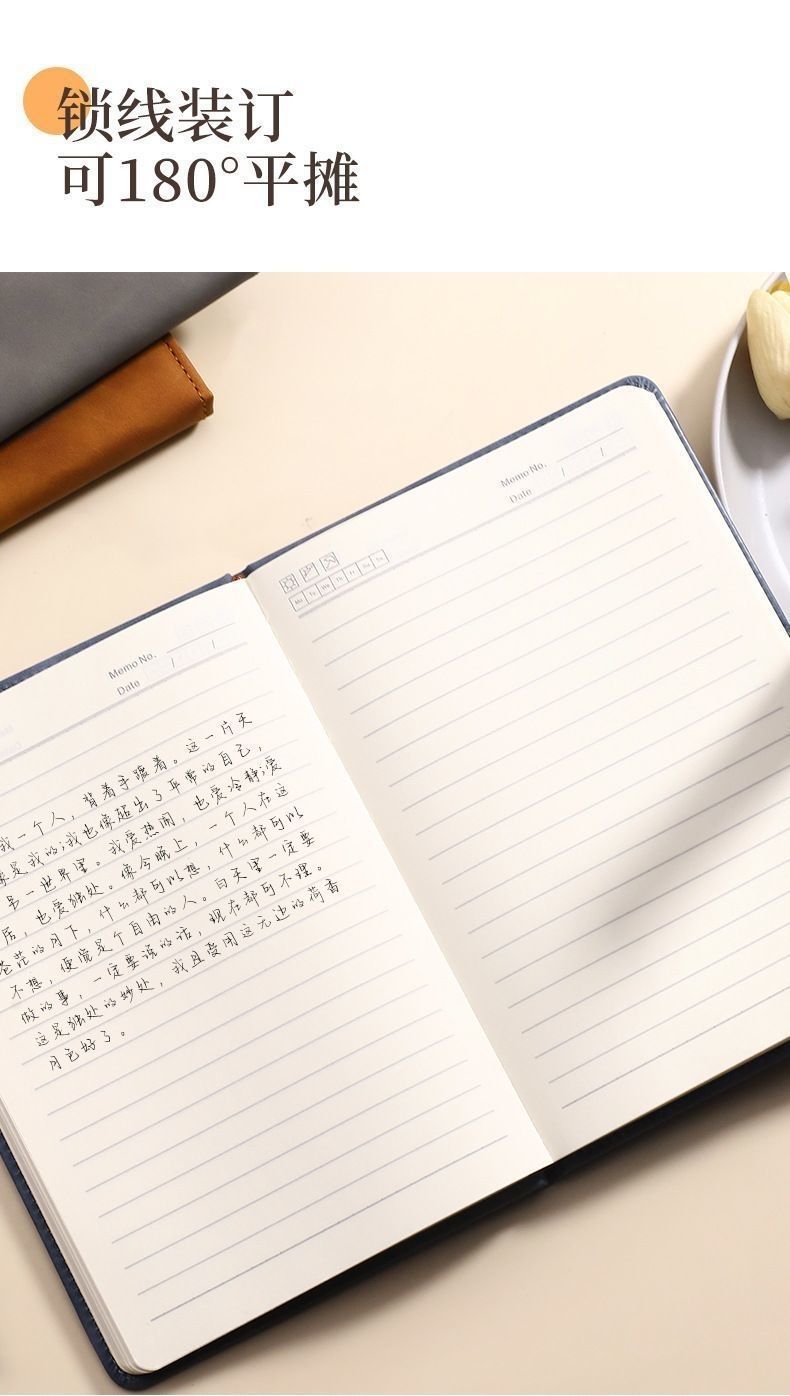 锁线装订
可180°平摊
Memo No.
Date / /
我一个人，背着手踱着。这一片天
像是我的;我也像超出了平常的自己，
另一世界里。我爱热闹，也爱冷静;爱
居，也爱独处。像今晚上，一个人在这
苍茫的月下，什么都可以想，什么都可以
不想，便觉是个自由的人。白天里一定要
做的事，一定要说的话，现在都可不理。
这是独处的妙处，我且受用这无边的荷香
月色好了。
Memo No.
Date / /
Mo Tu We Th Fr Sa Su